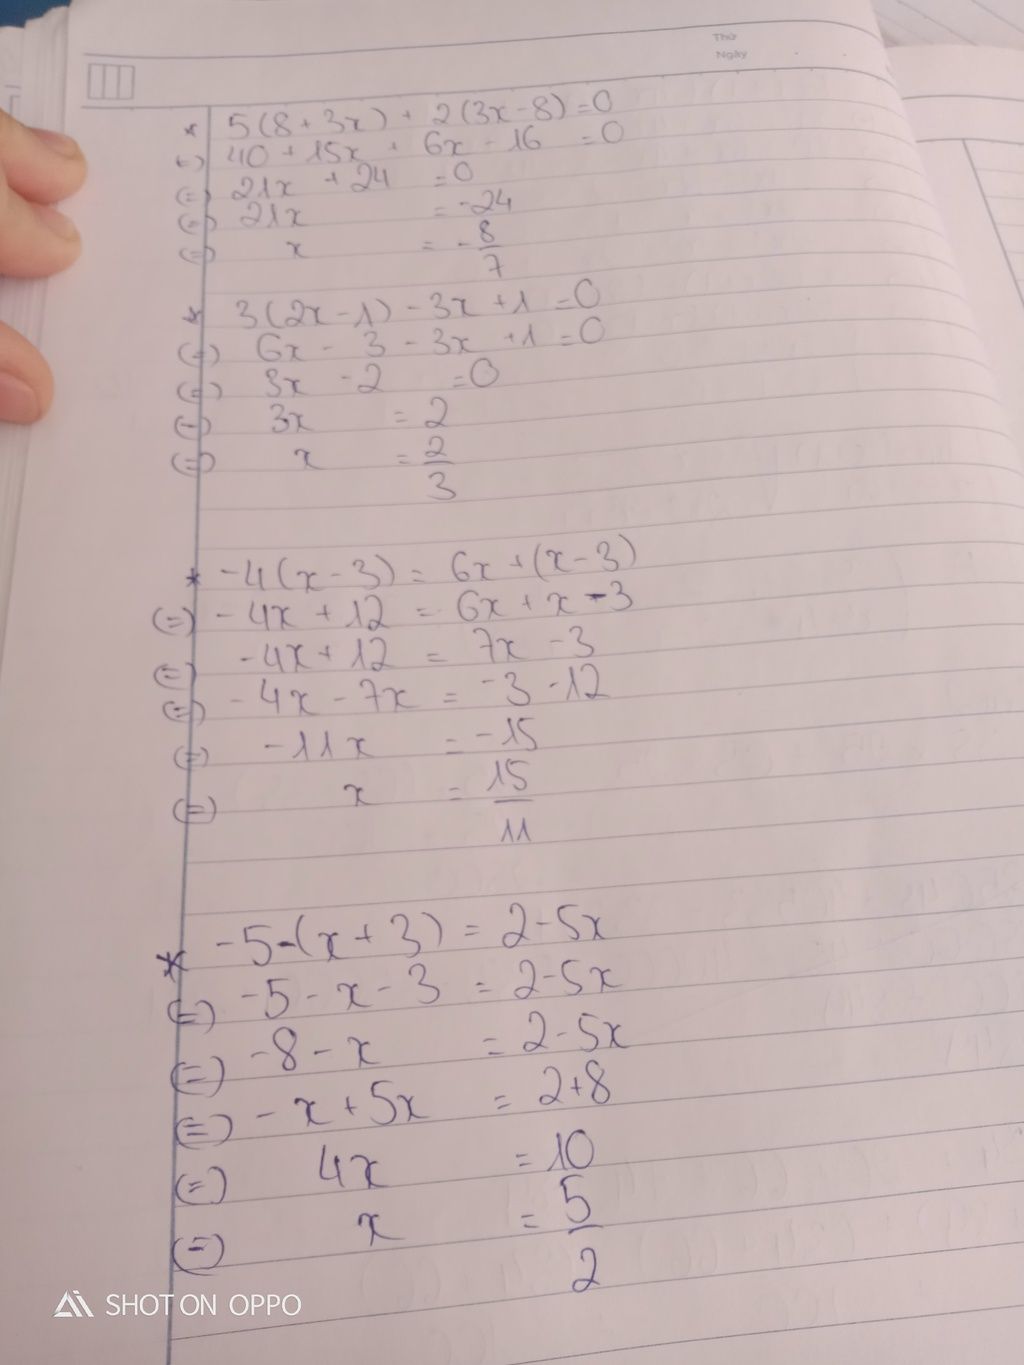 Thứ
Ngày
* 5(8 + 3x) + 2(3x - 8) = 0
(=) 40 + 15x + 6x - 16 = 0
(=) 21x + 24 = 0
(=) 21x = -24
(=) x = -8/7
* 3(2x - 1) - 3x + 1 = 0
(=) 6x - 3 - 3x + 1 = 0
(=) 3x - 2 = 0
(=) 3x = 2
(=) x = 2/3
* -4(x - 3) = 6x + (x - 3)
(=) -4x + 12 = 6x + x - 3
(=) -4x + 12 = 7x - 3
(=) -4x - 7x = -3 - 12
(=) -11x = -15
(=) x = 15/11
* -5 - (x + 3) = 2 - 5x
(=) -5 - x - 3 = 2 - 5x
(=) -8 - x = 2 - 5x
(=) -x + 5x = 2 + 8
(=) 4x = 10
(=) x = 5/2
SHOT ON OPPO